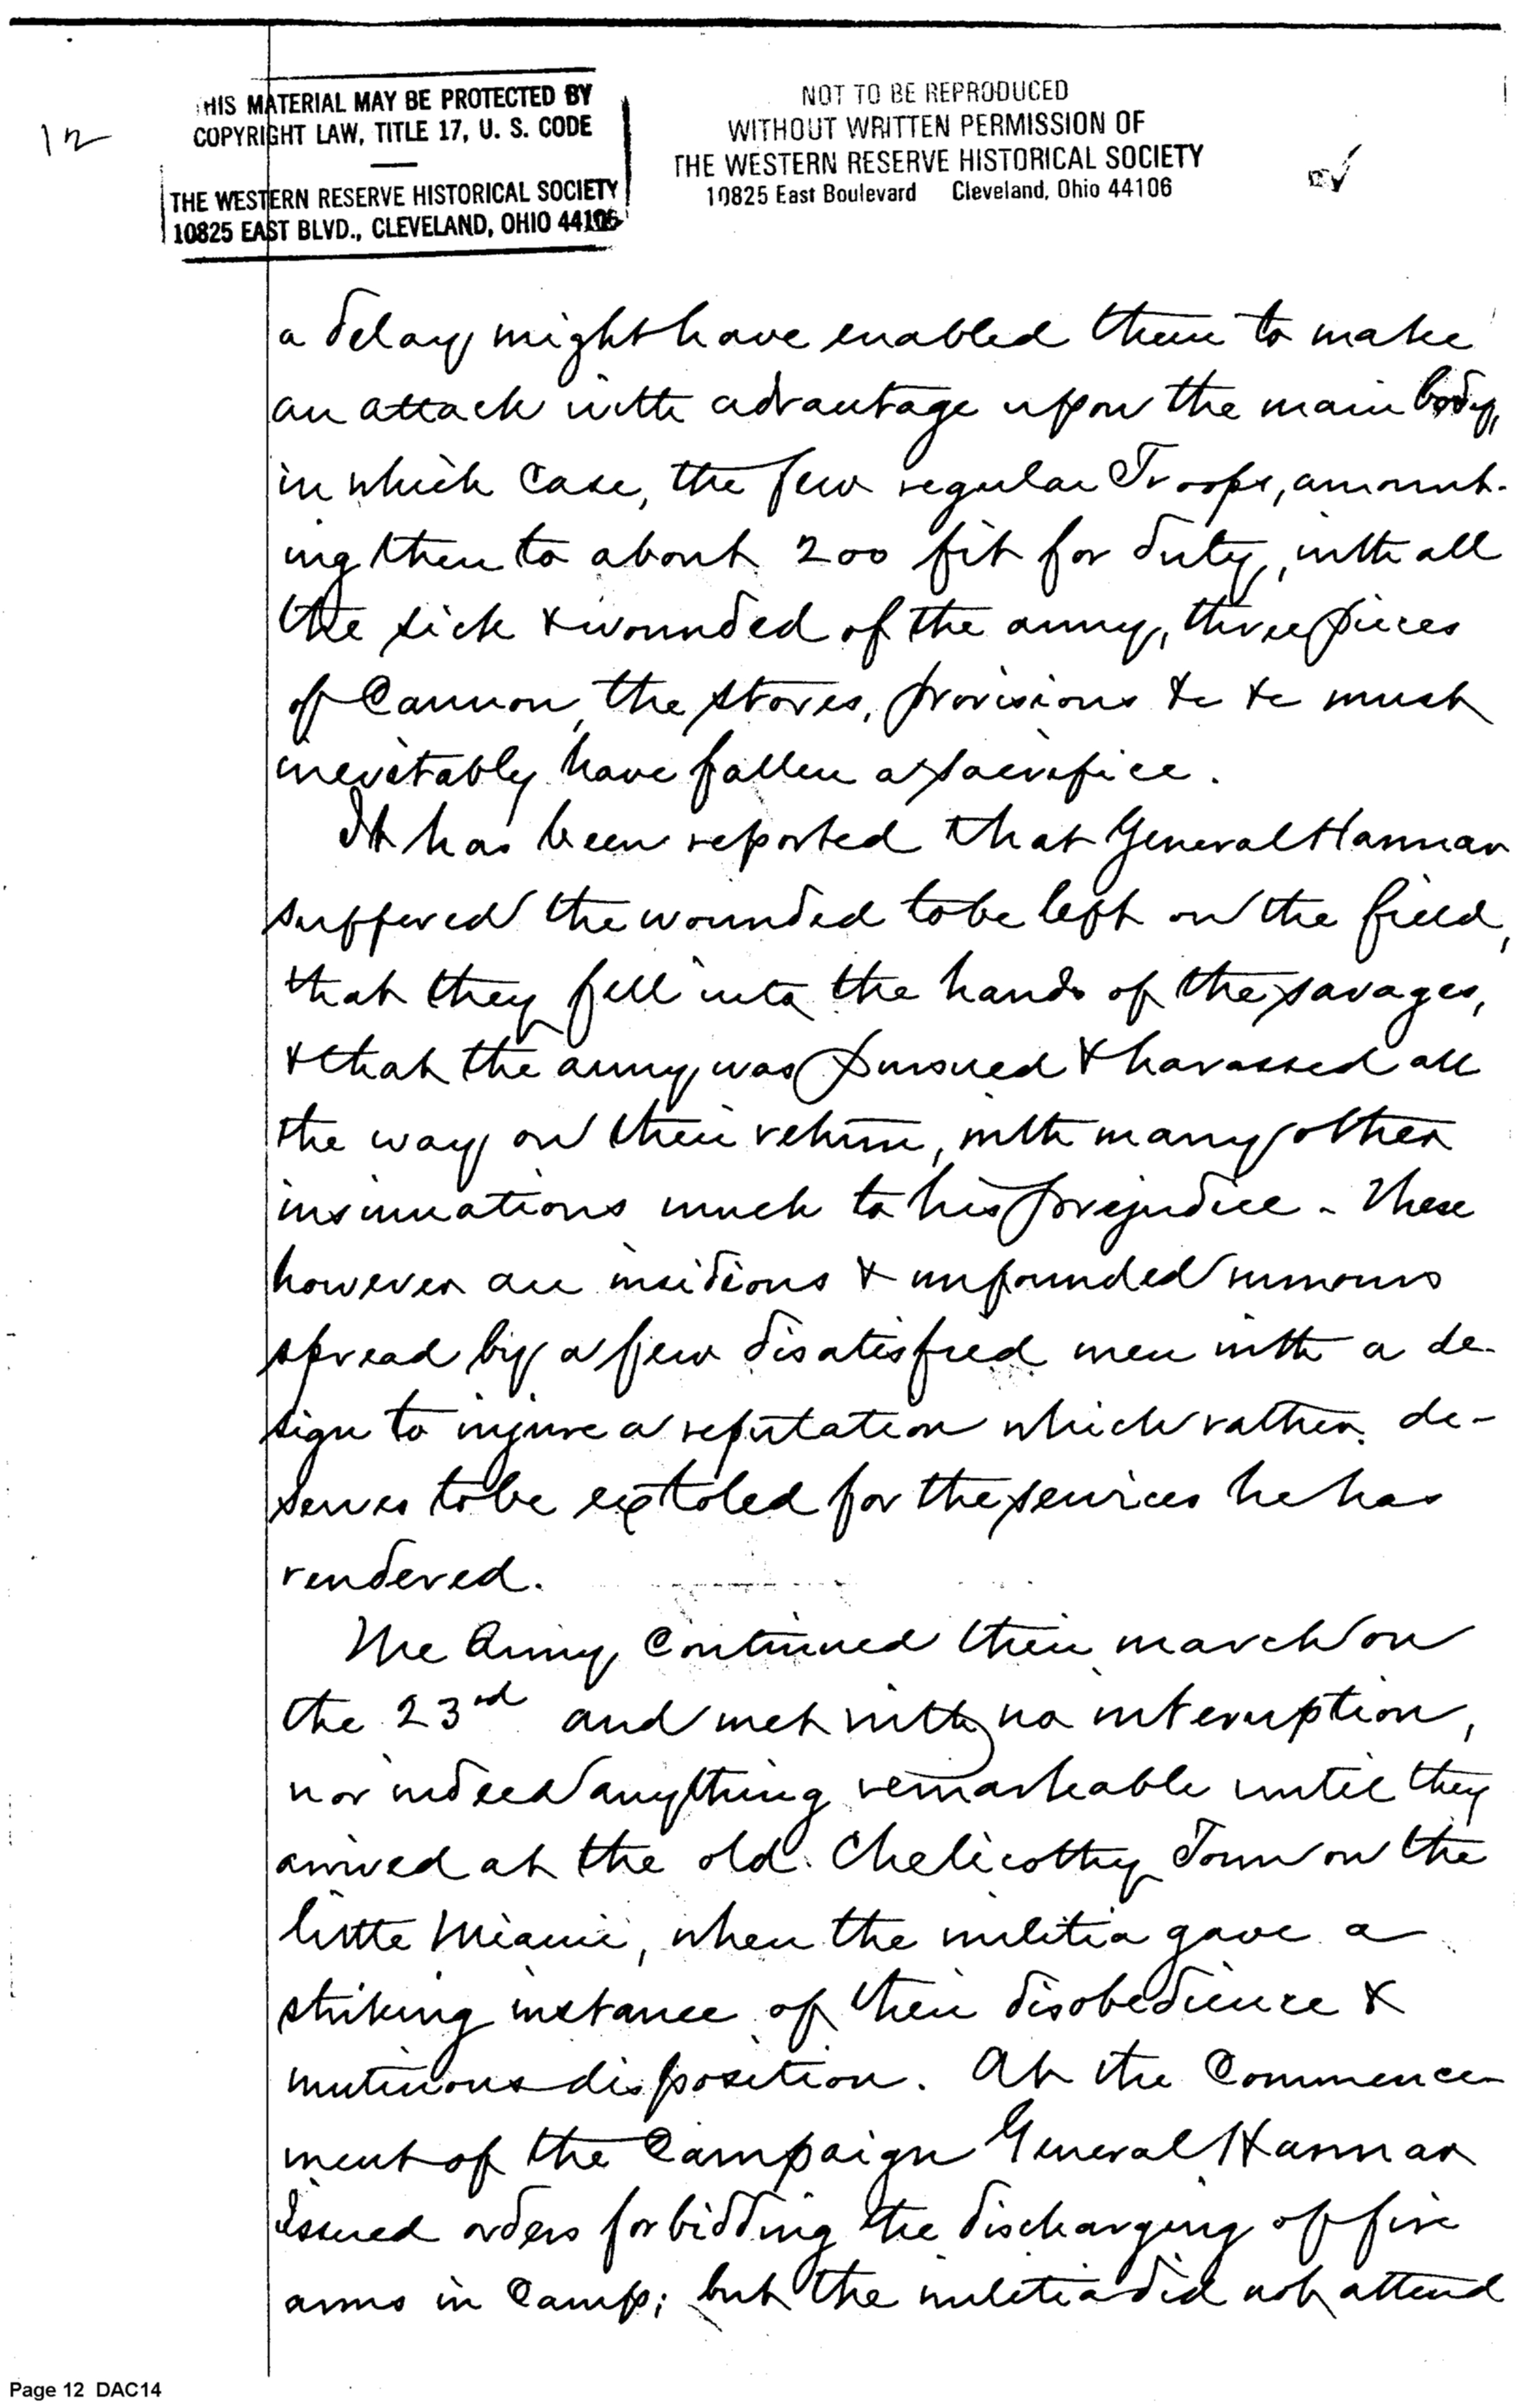 12
THIS MATERIAL MAY BE PROTECTED BY
COPYRIGHT LAW, TITLE 17, U. S. CODE
THE WESTERN RESERVE HISTORICAL SOCIETY
10825 EAST BLVD., CLEVELAND, OHIO 44106
NOT TO BE REPRODUCED
WITHOUT WRITTEN PERMISSION OF
THE WESTERN RESERVE HISTORICAL SOCIETY
10825 East Boulevard Cleveland, Ohio 44106
a delay might have enabled them to make
an attack with advantage upon the main body,
in which Case, the few regular Troops, amount-
ing then to about 200 fit for duty, with all
the sick & wounded of the army, three pieces
of Cannon, the stores, provisions &c &c must
inevitably have fallen a sacrifice.
It has been reported that General Harmar
suffered the wounded to be left on the field,
that they fell into the hands of the savages,
& that the army was pursued & harassed all
the way on their return, with many other
insinuations much to his prejudice - These
however are insidious & unfounded rumours
spread by a few disatisfied men with a de-
sign to injure a reputation which rather de-
serves to be extoled for the services he has
rendered.
The Army Continued their march on
the 23rd and met with no interuption,
nor indeed anything remarkable until they
arrived at the old Chelicothy Town on the
little Miami, when the militia gave a
striking instance of their disobedience &
mutinous disposition. At the Commence-
ment of the Campaign General Harmar
issued orders forbidding the discharging of fire
arms in Camp; but the militia did not attend
Page 12 DAC14